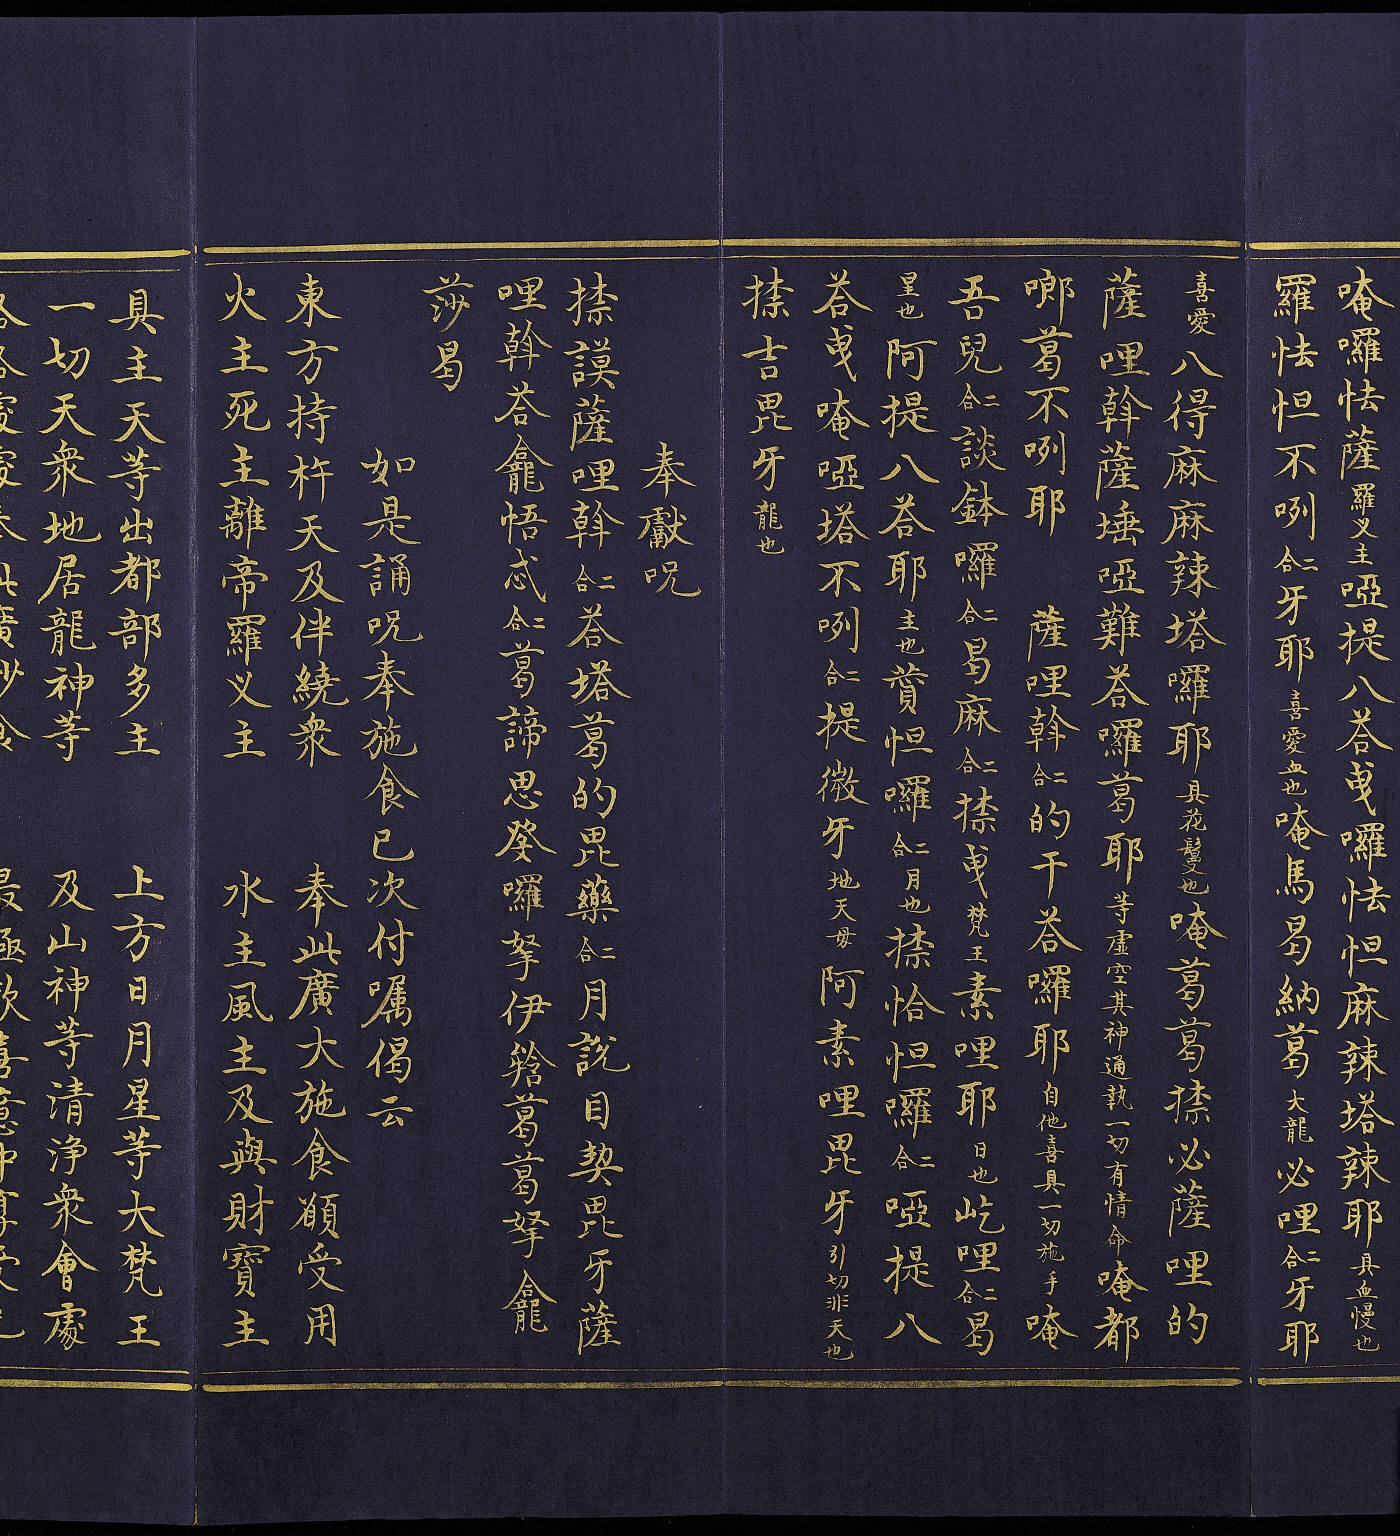 唵囉怯薩羅义主啞提八荅曳囉怯怛麻辣塔辣耶具血慢也
羅怯怛不咧二合牙耶喜愛血也唵馬曷納葛大龍必哩二合牙耶
喜愛八得麻麻辣塔囉耶具花鬘也唵葛葛捺必薩哩的
薩哩斡薩埵啞難荅囉葛耶等虛空其神通執一切有情命唵都
啷葛不咧耶　薩哩斡二合的干荅囉耶自他喜具一切施手唵
吾兒二合談鉢囉二合曷麻二合捺曳梵王素哩耶日也屹哩二合曷
星也阿提八荅耶主也贊怛囉二合月也捺恰怛囉二合啞提八
荅曳唵啞塔不咧二合提微牙地天母阿素哩毘牙引切非天也
捺吉毘牙龍也
奉獻呪
捺謨薩哩斡二合荅塔葛的毘藥二合月說目契毘牙薩
哩斡荅龕悟忒二合葛諦思癹囉拏伊葛葛拏龕
莎曷
如是誦呪奉施食已次付囑偈云
東方持杵天及伴繞衆　奉此廣大施食願受用
火主死主離帝羅义主　水主風主及與財寶主
具主天等出都部多主　上方日月星等大梵王
一切天衆地居龍神等　及山神等清净衆會處